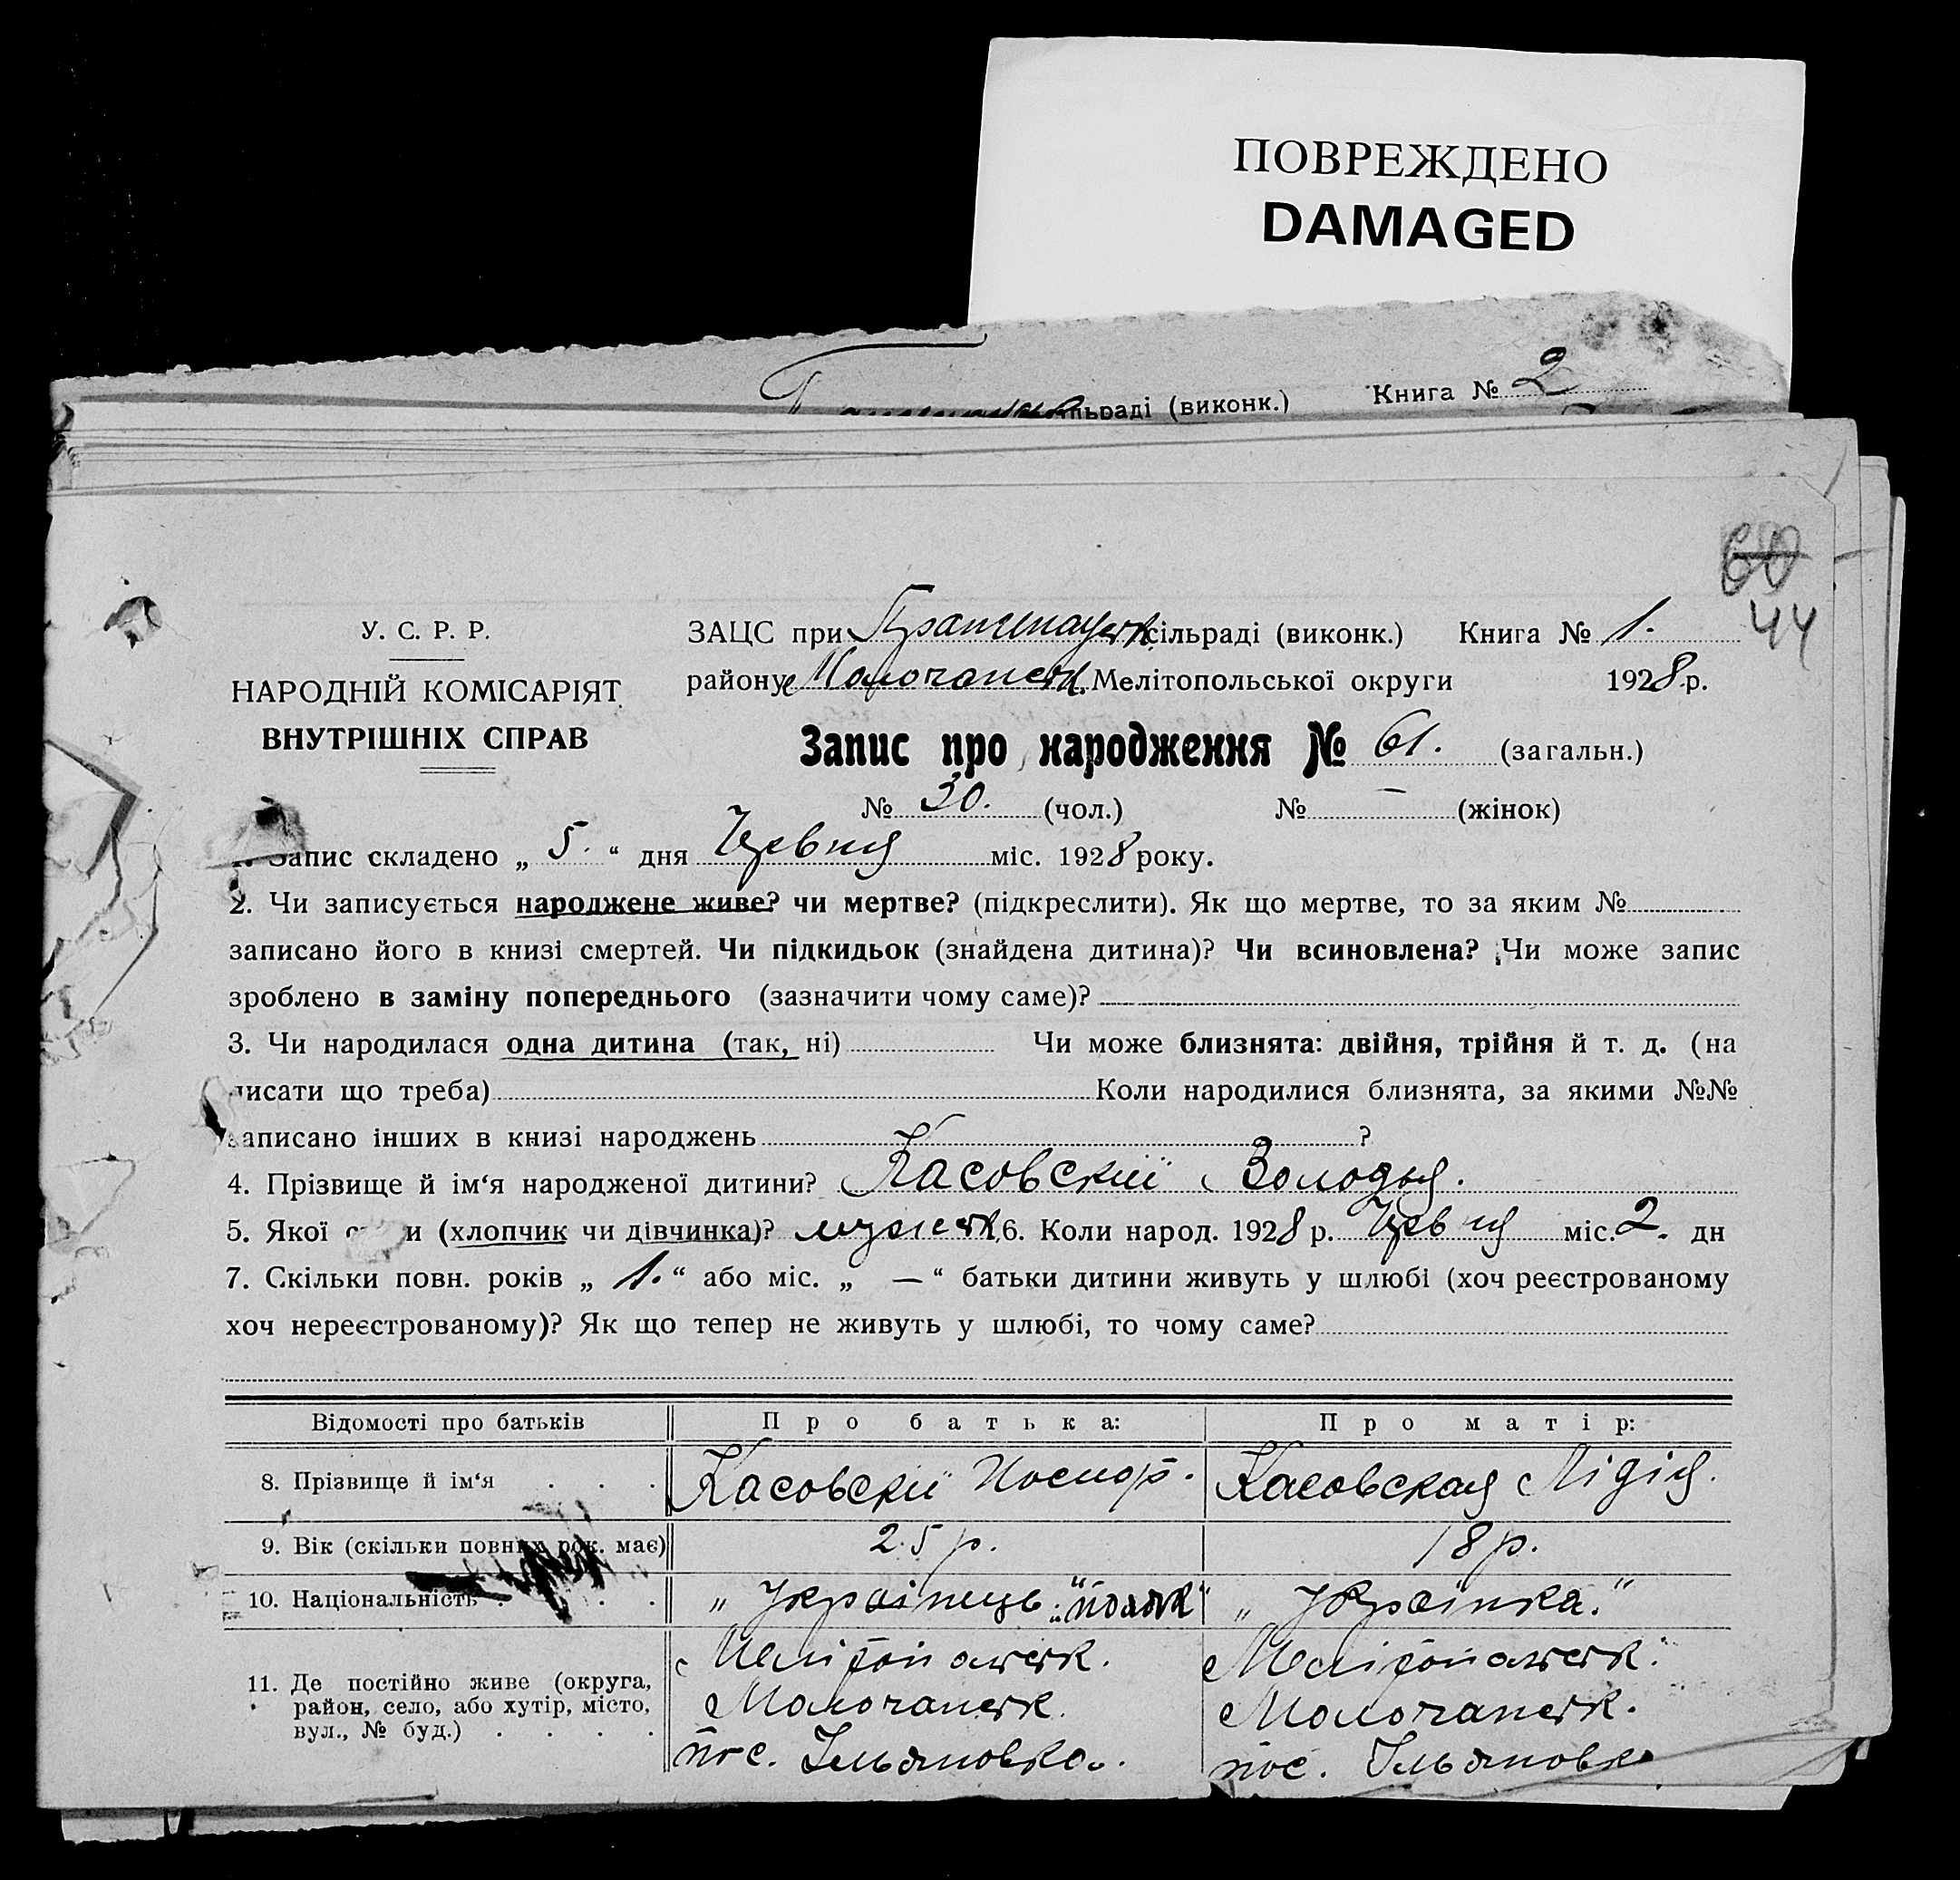 ПОВРЕЖДЕНО
DAMAGED
сільраді (виконк.) Книга № 2
60
44
У. С. Р. Р.
НАРОДНІЙ КОМІСАРІЯТ
ВНУТРІШНІХ СПРАВ
ЗАЦС при сільраді (виконк.) Книга № 1.
району Молочанськ. Мелітопольської округи 1928 р.
Запис про народження № 61. (загальн.)
№ 30. (чол.) № — (жінок)
1. Запис складено „ 5. “ дня Червня міс. 1928 року.
2. Чи записується народжене живе? чи мертве? (підкреслити). Як що мертве, то за яким №
записано його в книзі смертей. Чи підкидьок (знайдена дитина)? Чи всиновлена? Чи може запис
зроблено в заміну попереднього (зазначити чому саме)?
3. Чи народилася одна дитина (так, ні) Чи може близнята: двійня, трійня й т. д. (на
писати що треба) Коли народилися близнята, за якими №№
записано інших в книзі народжень ?
4. Прізвище й ім‘я народженої дитини? Касовский Володья.
5. Якої и (хлопчик чи дівчинка)? мужеськ 6. Коли народ. 1928 р. Червня міс. 2. дн
7. Скільки повн. років „ 1. “ або міс. „ — “ батьки дитини живуть у шлюбі (хоч реєстрованому
хоч нереєстрованому)? Як що тепер не живуть у шлюбі, то чому саме?
Відомості про батьків Про батька: Про матір:
8. Прізвище й ім‘я . . . Касовскії . Касовская Лідія.
9. Вік (скільки повних рок. має) 25 р. 18 р.
10. Національність . . . . „ Українець. “ „поляк“ „ Українка. “
11. Де постійно живе (округа, район, село, або хутір, місто, вул., № буд.) . . . .
Мелітопольськ.
Молочанськ.
пос. Ульяновка.
Мелітопольськ.
Молочанськ.
пос. Ульяновка